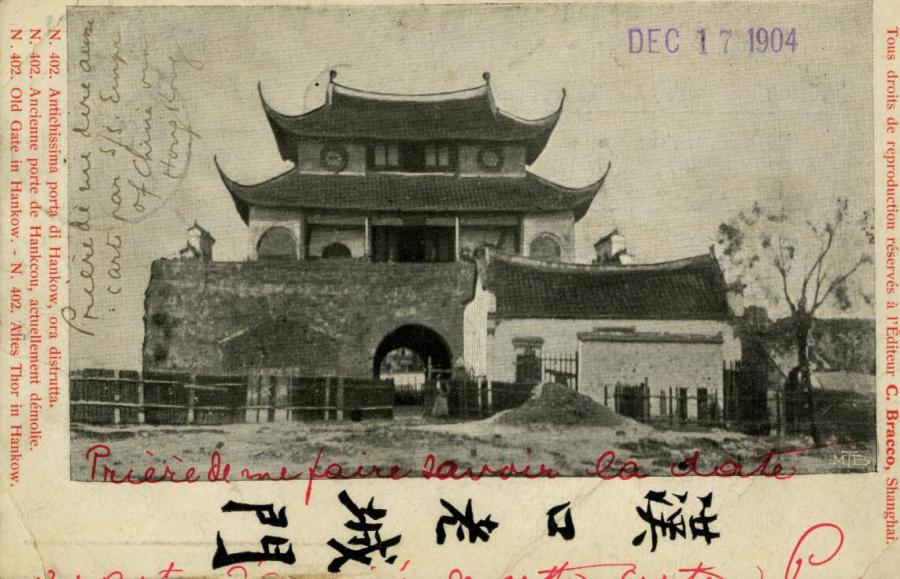 DEC 17 1904
N. 402. Antichissima porta di Hankow, ora distrutta.
N. 402. Ancienne porte de Hankcou, actuellement démolie.
N. 402. Old Gate in Hankow. - N. 402. Altes Thor in Hankow.
Prière de me dire
carte par S/S. Empr
of China via
Hong Kong
Tous droits de reproduction réservés à l'Éditeur C. Bracco, Shanghai.
Prière de me faire savoir la date
漢口老城門